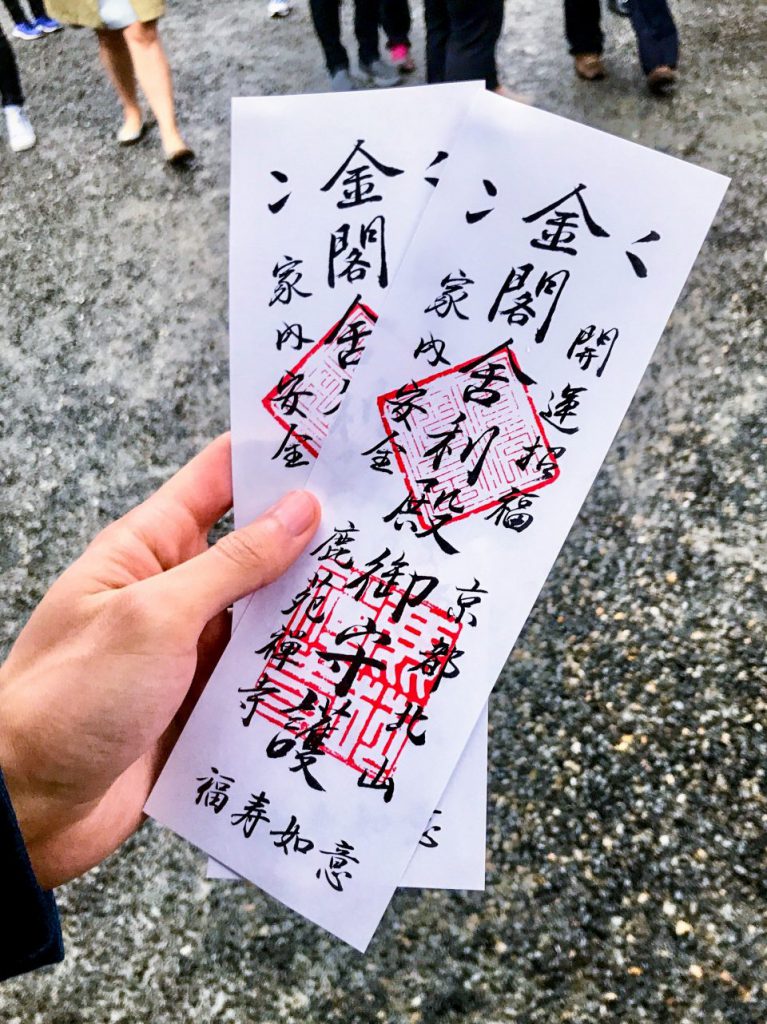 開運招福
金閣舎利殿御守護
家内安全
京都北山
鹿苑禅寺
福寿如意
金閣舎
家内安全
意